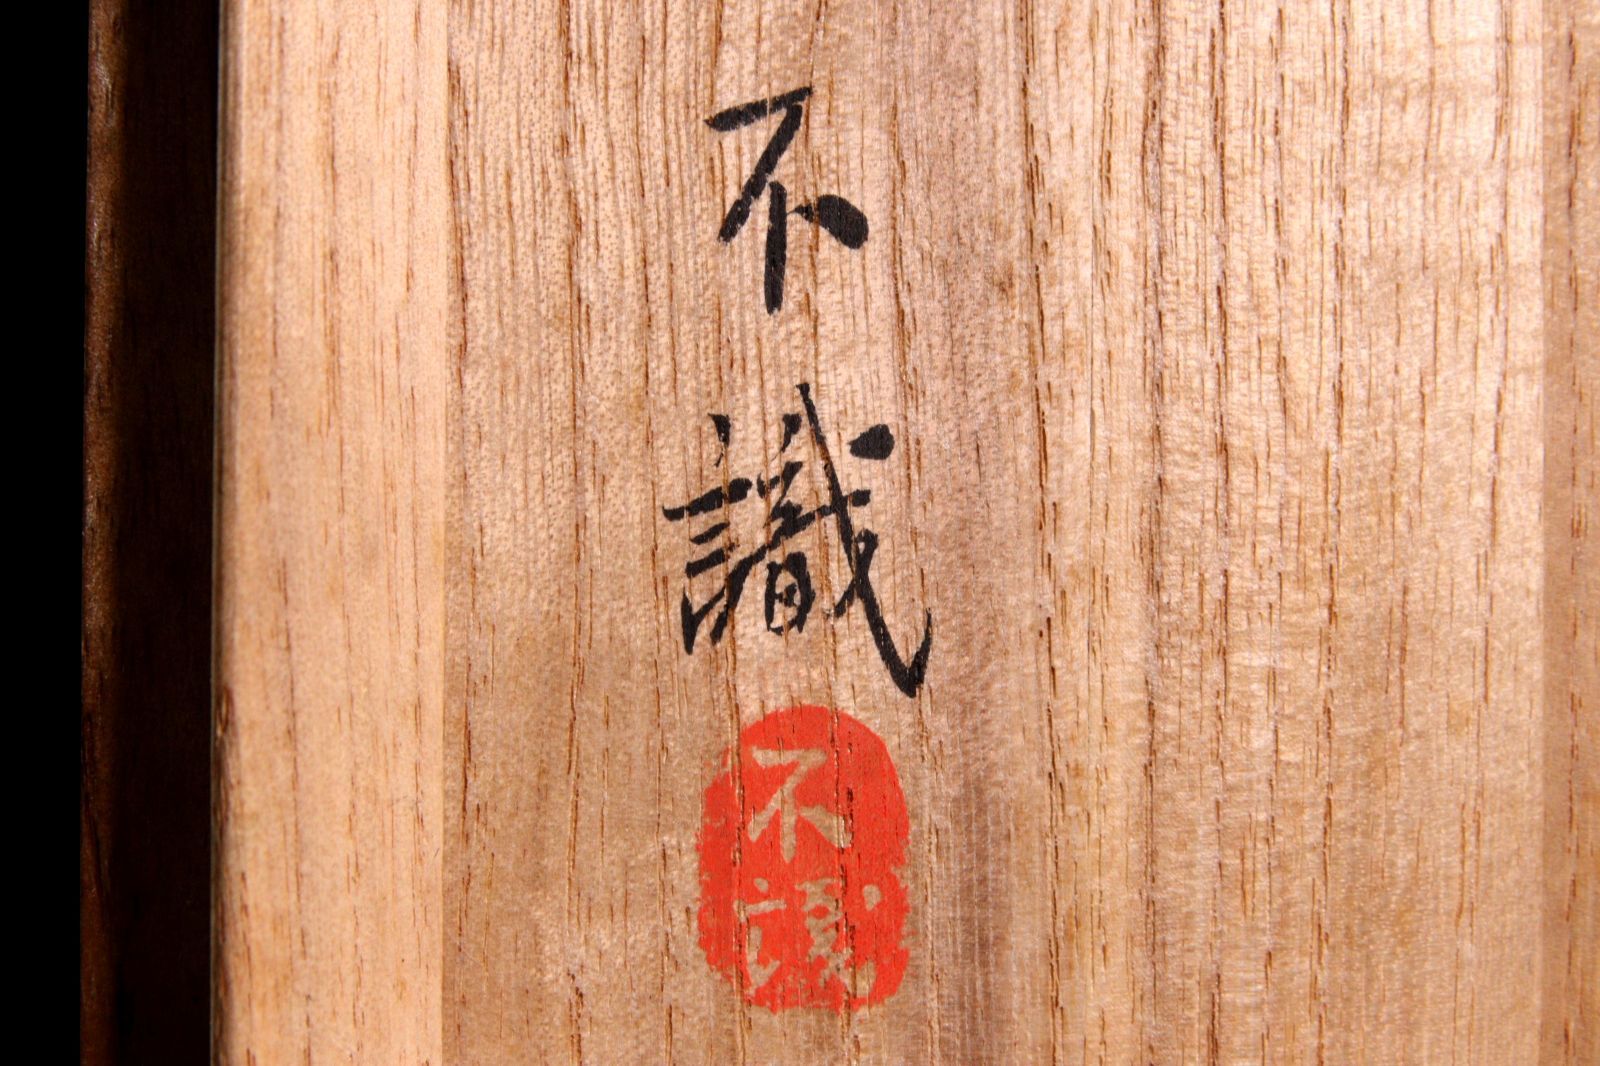 不識
不識